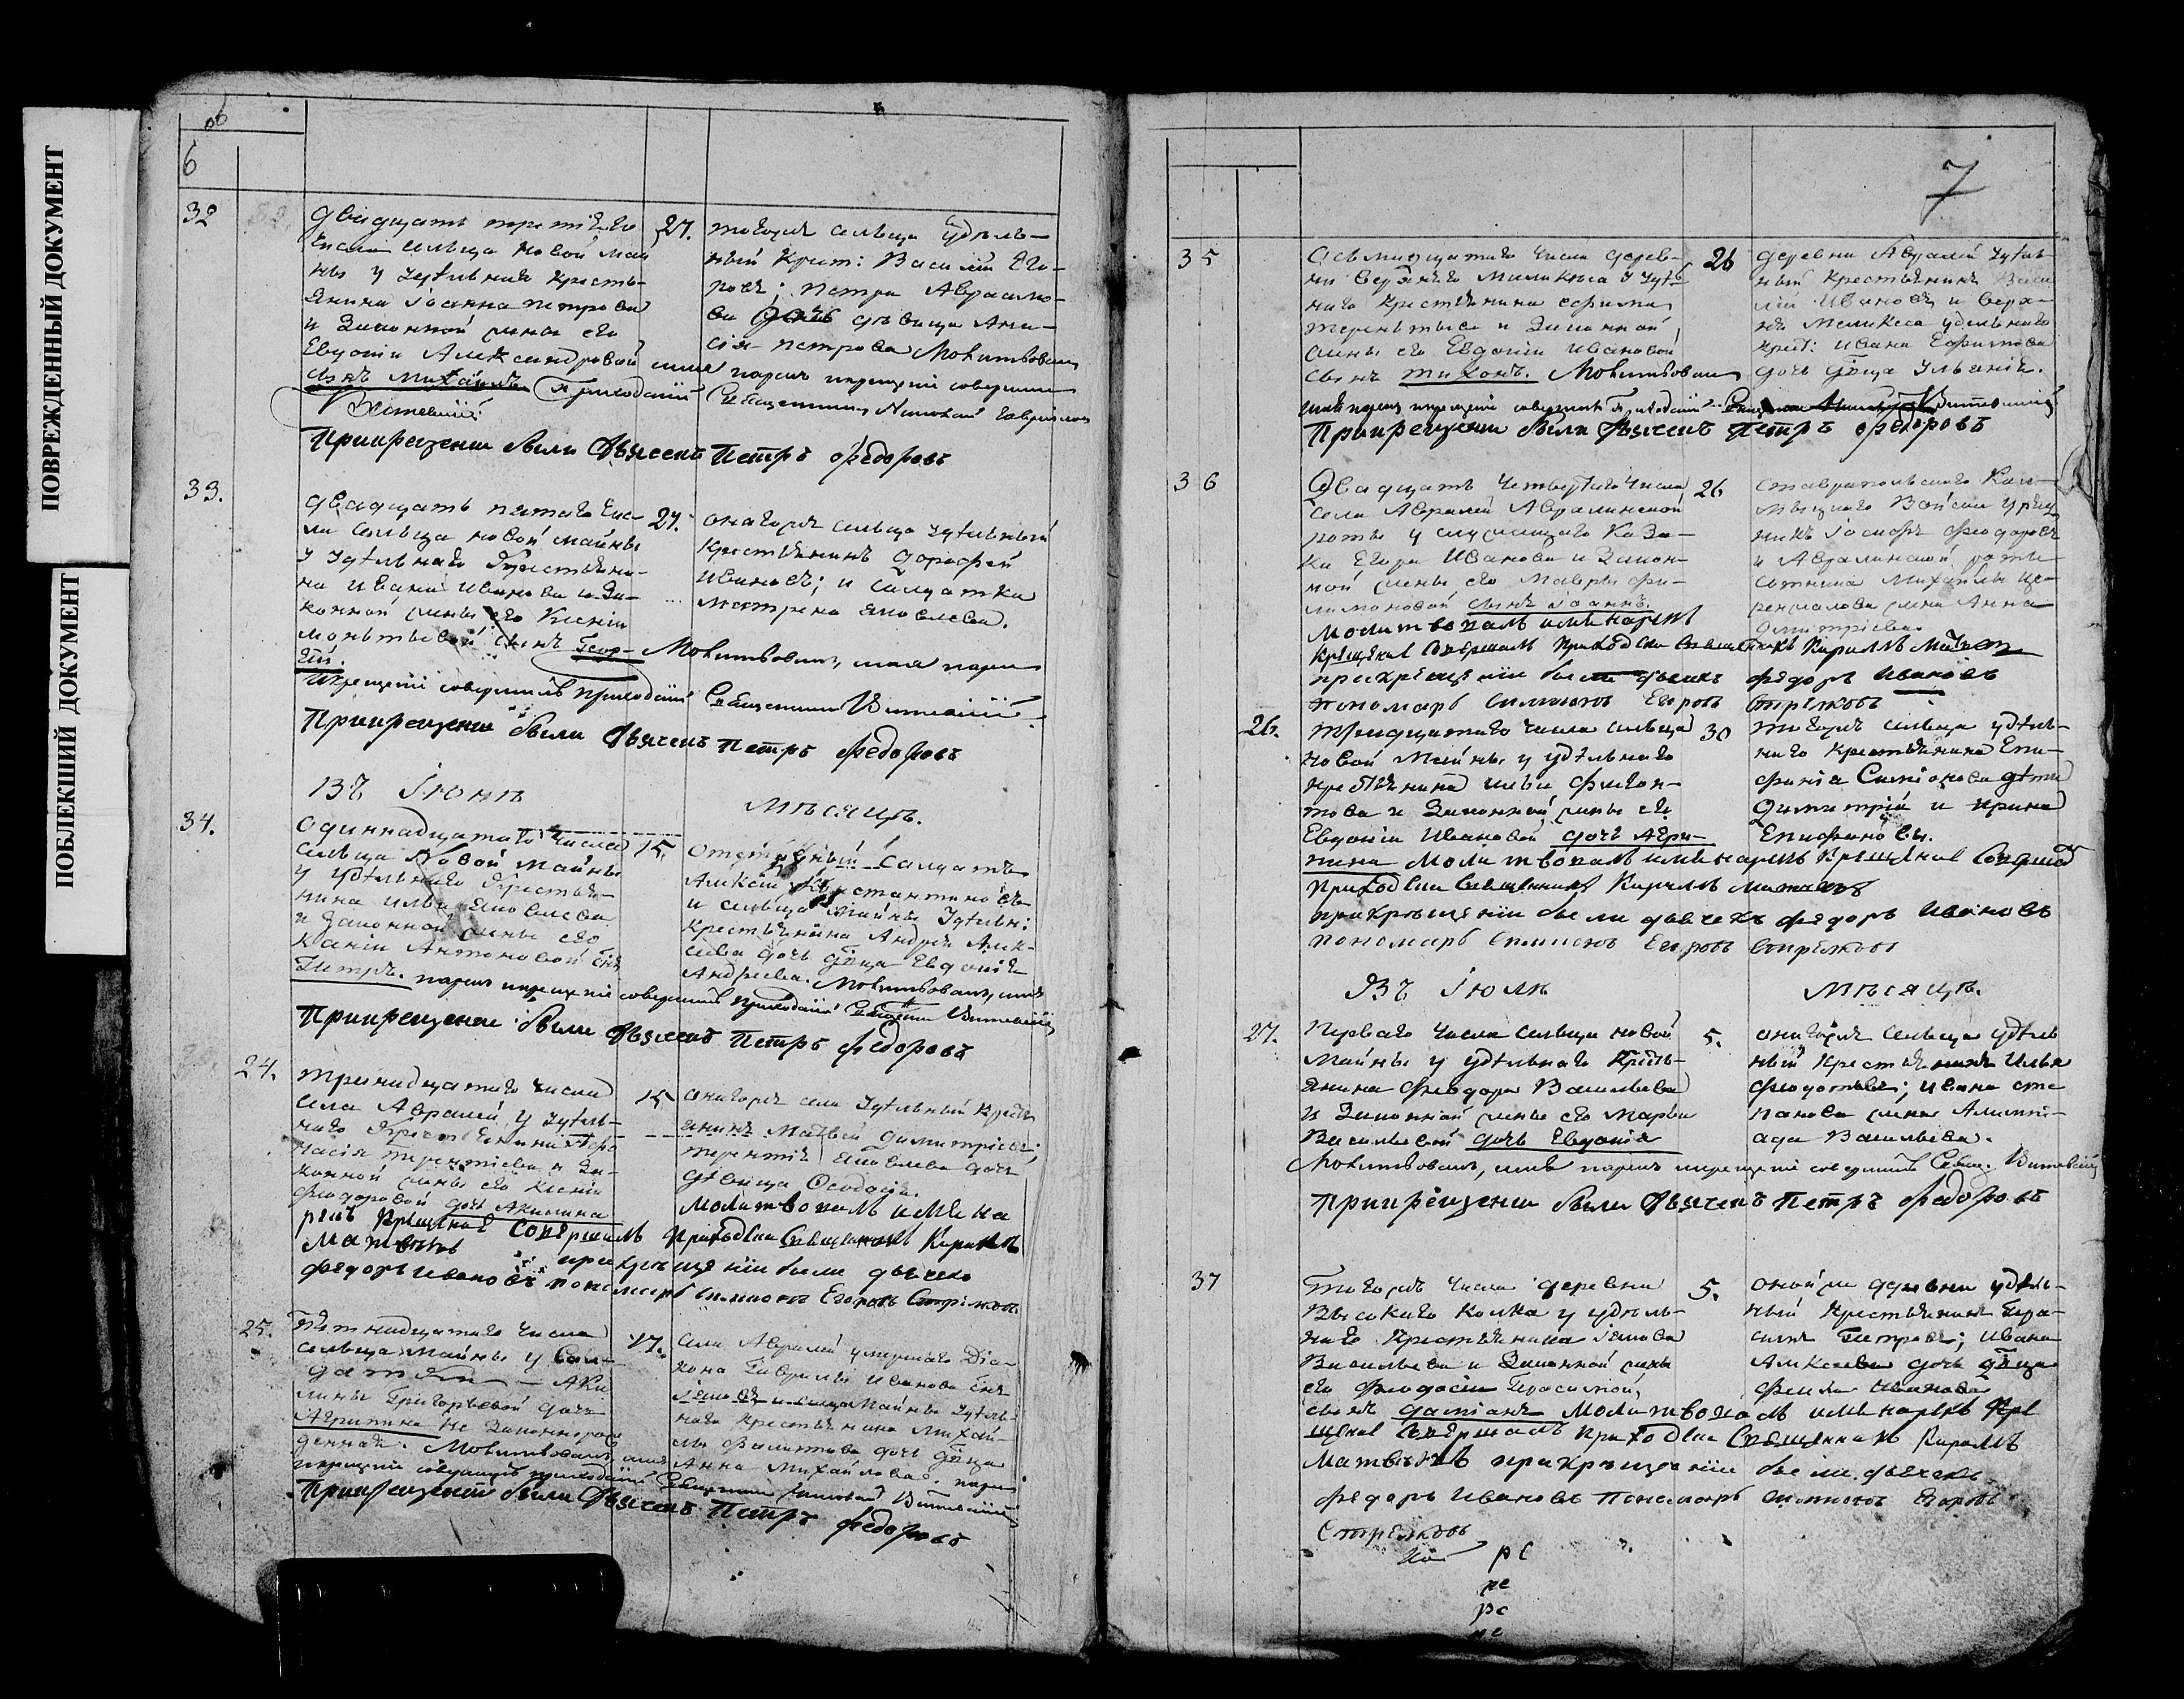 ПОВРЕЖДЕННЫЙ ДОКУМЕНТ
ПОБЛЕКШИЙ ДОКУМЕНТ
об
6
32
двадцать третьяго
числа сельца Новой Май
ны у удельнаго кресть-
янина Іоанна Петрова
и законной жены его
Евдокіи Александровой
сынъ Михаилъ
27.
тогожъ сельца удѣль-
ный крест: Василій Его-
ровъ; Петра Авраамо-
ва дочь дѣвица Ани-
сія Петрова Молитвовалъ
имя нарекъ и крещеніе совершилъ
Приходскій Священникъ Николай
Витевскій
Прикрещеніи были Дьячекъ Петръ Федоровъ
33.
двадцать пятаго чис-
ла сельца новой майны
у удѣльнаго крестьяни-
на Ивана Иванова и за-
конной жены его Ксеніи
сынъ Геор-
гій.
27.
оногожъ сельца удѣльный
крестьянинъ Дорофей
Ивановъ; и салдатка
Матрена Яковлева.
Молитвовалъ, имя нарекъ
и крещеніе совершилъ приходскій Священникъ Витевскій
Прикрещеніи были Дьячекъ Петръ Федоровъ
Въ Іюнѣ Мѣсяцѣ.
34.
Одиннадцатаго числа
сельца Новой Майны
у удѣльнаго крестья-
нина Ильи Яковлева
и законной жены его
Ксеніи Антоновой сынъ
Петръ.
15.
отставный салдатъ
Алексій Константиновъ
и сельца Майны удѣльн:
крестьянина Андрея Алек-
сѣева дочь дѣвица Евдокія
Андреева. Молитвовалъ, имя
нарекъ и крещеніе совершилъ приходскій Священникъ Витевскій
Прикрещеніи были Дьячекъ Петръ Федоровъ
24.
тринадцатаго числа
села Авралей у удѣль-
наго крестьянина
Терентіева и за-
конной жены его Ксеніи
Феодоровой дочь Акилина
15
оногожъ села удѣльный крестья
янинъ Матвей Димитріевъ;
Терентія Яковлева дочь
дѣвица Феодосія.
Молитвовалъ имя на
рекъ Крещеніе Совершилъ приходскій Священникъ Кирилъ
Матвѣевъ
прикрещеніи были дьячекъ
Федоръ Ивановъ пономарь Симионъ Егоровъ Стрелковъ
25.
Пятнадцатаго числа
сельца Майны у Сал-
датки Аки
лины Григорьевой дочь
Агрипина не законнорож
денная. Молитвовалъ, имя
17.
села Авралей умершаго Діа-
кона Гавріила Иванова сынъ
Яковъ и сельца Майны удѣль-
наго крестьянина Михай-
лы дочь дѣвица
Анна Михайлова. нарекъ
и крещеніе совершилъ приходскій Священникъ Николай Витевскій
Прикрещеніи были Дьячекъ Петръ Федоровъ
7
35
Осьмнадцатаго числа дерев-
ни Верхняго Мелекеса у удѣль
наго крестьянина Ефима
Терентьева и законной
жены его Евдокіи Ивановой
сынъ Тихонъ. Молитвовалъ
26
деревни Авралей удѣль
ный крестьянинъ Васи
лій Ивановъ и Верх-
ня Мелекеса удѣльнаго
крест: Ивана Ефимова
дочь дѣвица Ульянія.
имя нарекъ и крещеніе совершилъ Приходскій Витевскій
Прикрещеніи были Дьячекъ Петръ Федоровъ
36
Двадцать четвертаго числа
села Авралей Авралинской
роты у служащаго Каза-
ка Егора Иванова и закон-
ной жены его Мавры Фи-
лимоновой сынъ Іоаннъ.
26
Ставропольскаго Кал-
мыцкаго Войска Уряд
никъ Іосифъ Феодоровъ
и Авралинской роты
сотника Михайлы Це-
ренжалова жена Анна
Димитріева.
Молитвовалъ имя нарекъ
крещеніе Совершилъ Приходскій Священникъ Кирилъ Матвеевъ
прикрещеніи были дьячекъ Федоръ Ивановъ
пономарь Симионъ Егоровъ Стрелковъ
26.
тридцатаго числа сельца
Новой Майны у удѣльнаго
крестьянина Ильи
и законной жены его
Евдокіи Ивановой дочь Агри-
пина
30
тогожъ сельца удѣль-
наго крестьянина Епи-
фанія Симіонова дѣти
Димитрій и Ирина
Епифановы.
Молитвовалъ имя нарекъ Крещеніе Совершилъ
Приходскій Священникъ Кирилъ Матвѣевъ
прикрещеніи были дьячекъ Федоръ Ивановъ
пономарь Симионъ Егоровъ Стрелковъ
Въ Іюлѣ Мѣсяцѣ.
27.
Перваго числа сельца Новой
Майны у удѣльнаго кресть-
янина Феодора Васильева
и законной жены его Марьи
Васильевой дочь Евдокія
5.
оногожъ сельца удѣль
ный крестьянинъ Илья
Федотовъ; Ивана Сте
панова жена Алимпі-
ада Васильева.
Молитвовалъ, имя нарекъ и крещеніе совершилъ Свящ. Витевскій
Прикрещеніи были Дьячекъ Петръ Федоровъ
37
Тогожъ числа деревни
Высокаго Колка у удѣль-
наго крестьянина Іакова
Васильева и законной жены
его Феодосіи Герасимой,
сынъ Даміанъ
5.
оной же деревни удѣль-
ный крестьянинъ Гера-
симъ Петровъ; Ивана
Алексеева дочь дѣвица
Фекла Иванова
Молитвовалъ имя нарекъ Кре
щеніе Совершилъ Приходскій Священникъ Кирилъ
Матвѣевъ прикрещеніи были дьячекъ
Федоръ Ивановъ Пономарь Симионъ Егоровъ
Стрелковъ
рс
рс
рс
рс